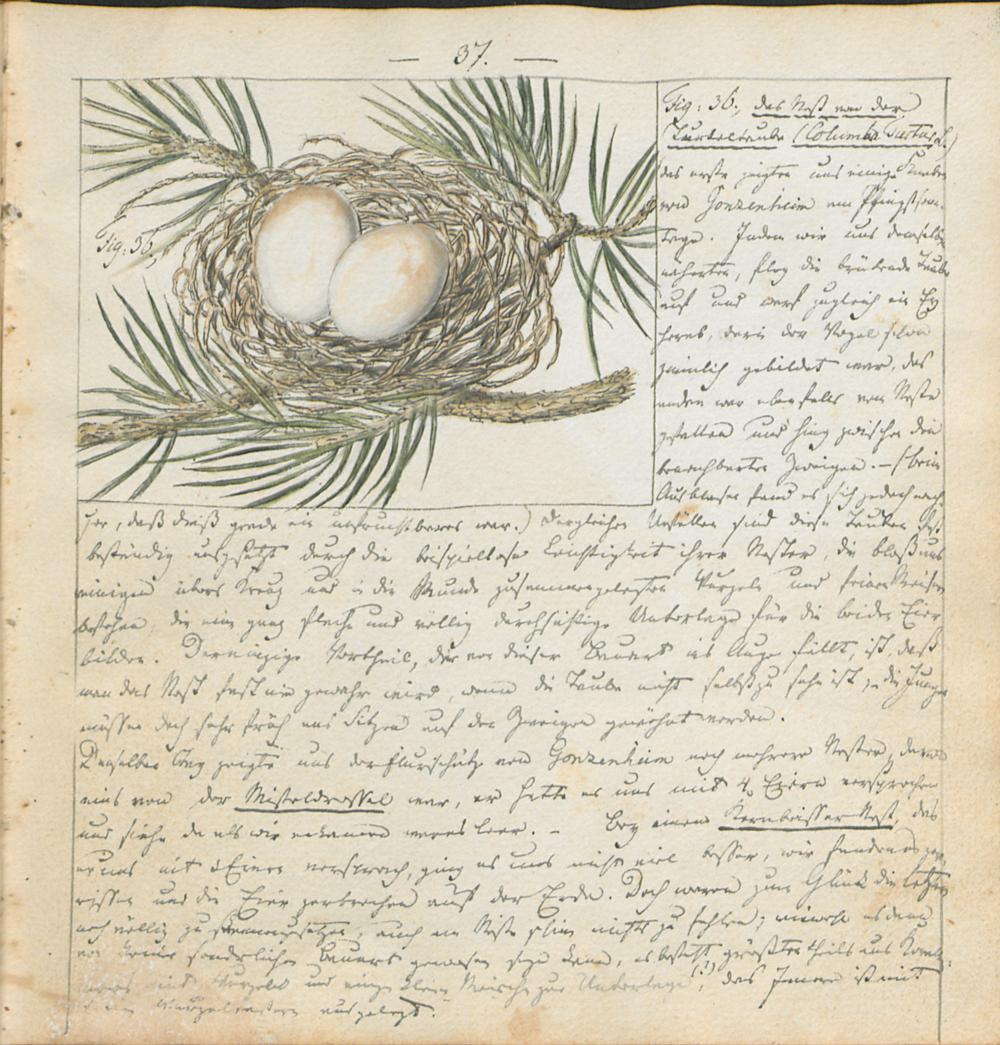 — 37. —
Fig: 36., das Nest von der
Turteltaube (Columba Turtur L.)
das erste zeigten uns einige Knaben
von Gonzenheim am Pfingstsonn-
tage. Indem wir uns demselben
näherten, flog die brütende Taube
auf und warf zugleich ein Ey
herab, darin der Vogel schon
ziemlich gebildet war, das
andere war ebenfalls vom Neste
gefallen und hing zwischen den
benachbarten Zweigen. — (beim
Ausblasen fand es sich jedoch nach
Fig: 36.
her, daß dieß grade ein unfruchtbares war.) Dergleichen Unfällen sind diese Tauben fast
beständig ausgesetzt durch die beispiellose Leichtigkeit ihrer Nester, die bloß aus
einigen übers Kreuz und in die Runde zusammengelegten Wurzeln und feinen Reisern
bestehen, die eine ganz flache und völlig durchsichtige Unterlage für die beiden Eier
bilden. Der einzige Vortheil, der von dieser Bauart ins Auge fällt, ist, daß
man das Nest fast nie gewahr wird, wenn die Taube nicht selbst zu sehn ist, die Jungen
müssen doch sehr früh ans Sitzen auf den Zweigen gewöhnt werden.
Denselben Tag zeigte uns der Flurschütz von Gonzenheim noch mehrere Nester, davon
eins von der Misteldrossel war, er hatte es uns mit 4 Eiern versprochen
und siehe da als wir ankamen war es leer. — Bey einem Kernbeisser Nest, das
er uns mit Eiern versprach, ging es uns nicht viel besser, wir fanden es zer-
rissen und die Eier zerbrochen auf der Erde. Doch waren zum Glück die letzten
noch völlig zusammenzusetzen, auch am Neste schien nichts zu fehlen; es
von keiner sonderlichen Bauart gewesen seyn kann, es besteht größtentheils aus
und Wurzeln und einige kleine zur Unterlage, das Innere ist mit
ausgelegt.